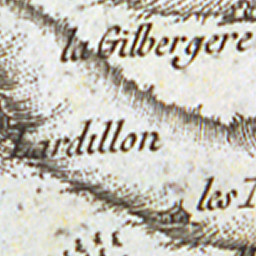 la Gilbergere
Lardillon
les